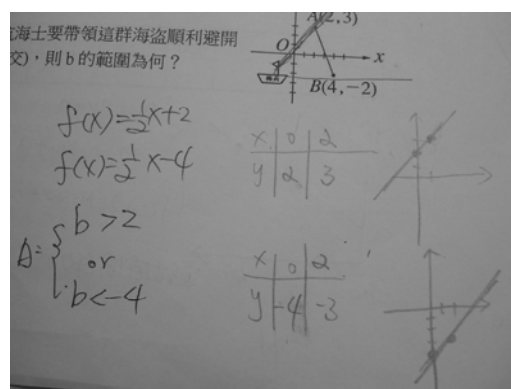 海士要帶領這群海盜順利避開
交)，則b的範圍為何？
A(2,3)
O
x
B(4,-2)
f(x)=½x+2
f(x)=½x-4
x 0 2
y 2 3
A= { b>2
or
b<-4
x 0 2
y -4 -3